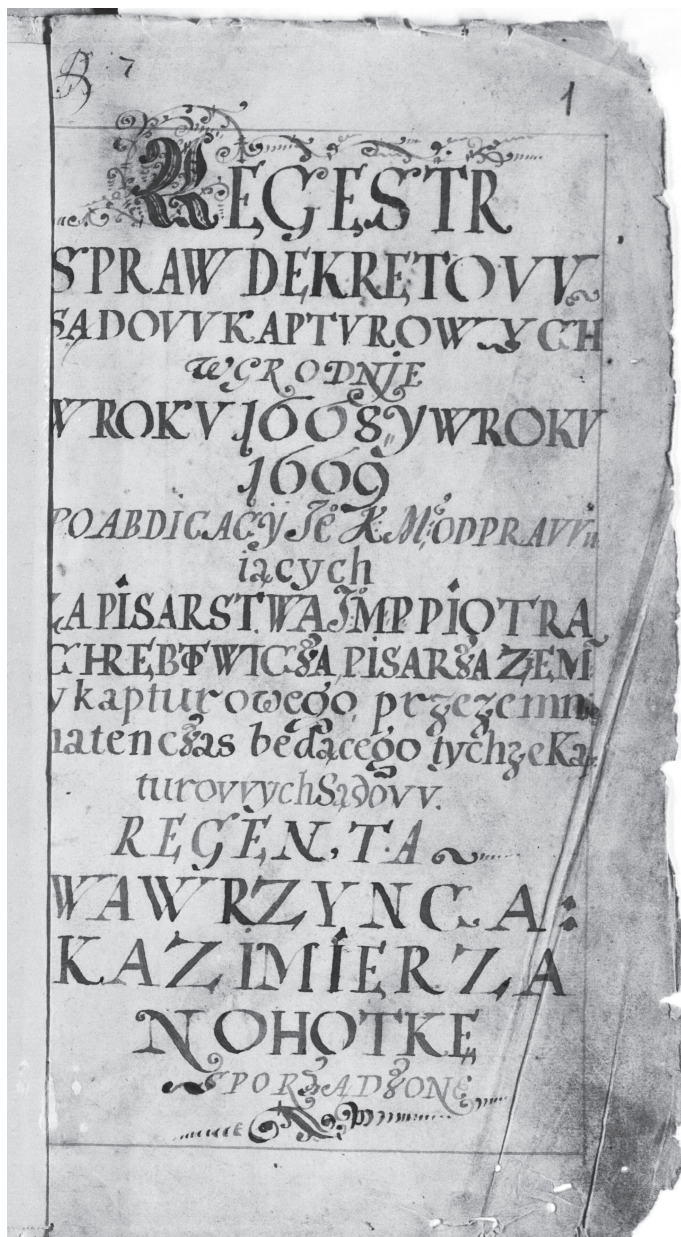 7
1
REGESTR
SPRAW DEKRETOVV
SĄDOVV KAPTVROWYCH
W GRODNIE
W ROKV 1668 Y W ROKV
1669
PO ABDICACYJ Jē K M: ODPRAVVu
iących
ZA PISARSTWA JMP PIOTRA
CHREBTOWICZA PISARZA ZEM
y kapturowego przezemni
natenczas będącego tychze Kap
turovvych Sądovv.
REGENTA
WAWRZYNCA:
KAZIMIERZA
NOHOTKĘ
SPORZĄDZONĘ